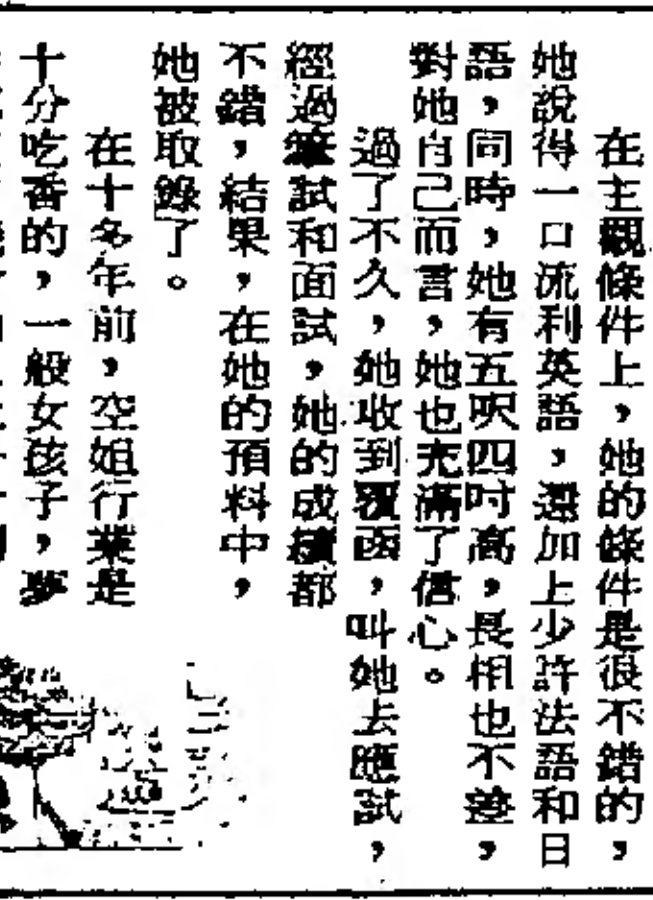 在主觀條件上，她的條件是很不錯的，
她說得一口流利英語，還加上少許法語和日
語，同時，她有五呎四吋高，長相也不差，
對她自己而言，她也充滿了信心。
過了不久，她收到覆函，叫她去應試，
經過筆試和面試，她的成績都
不錯，結果，在她的預料中，
她被取錄了。
在十多年前，空姐行業是
十分吃香的，一般女孩子，夢